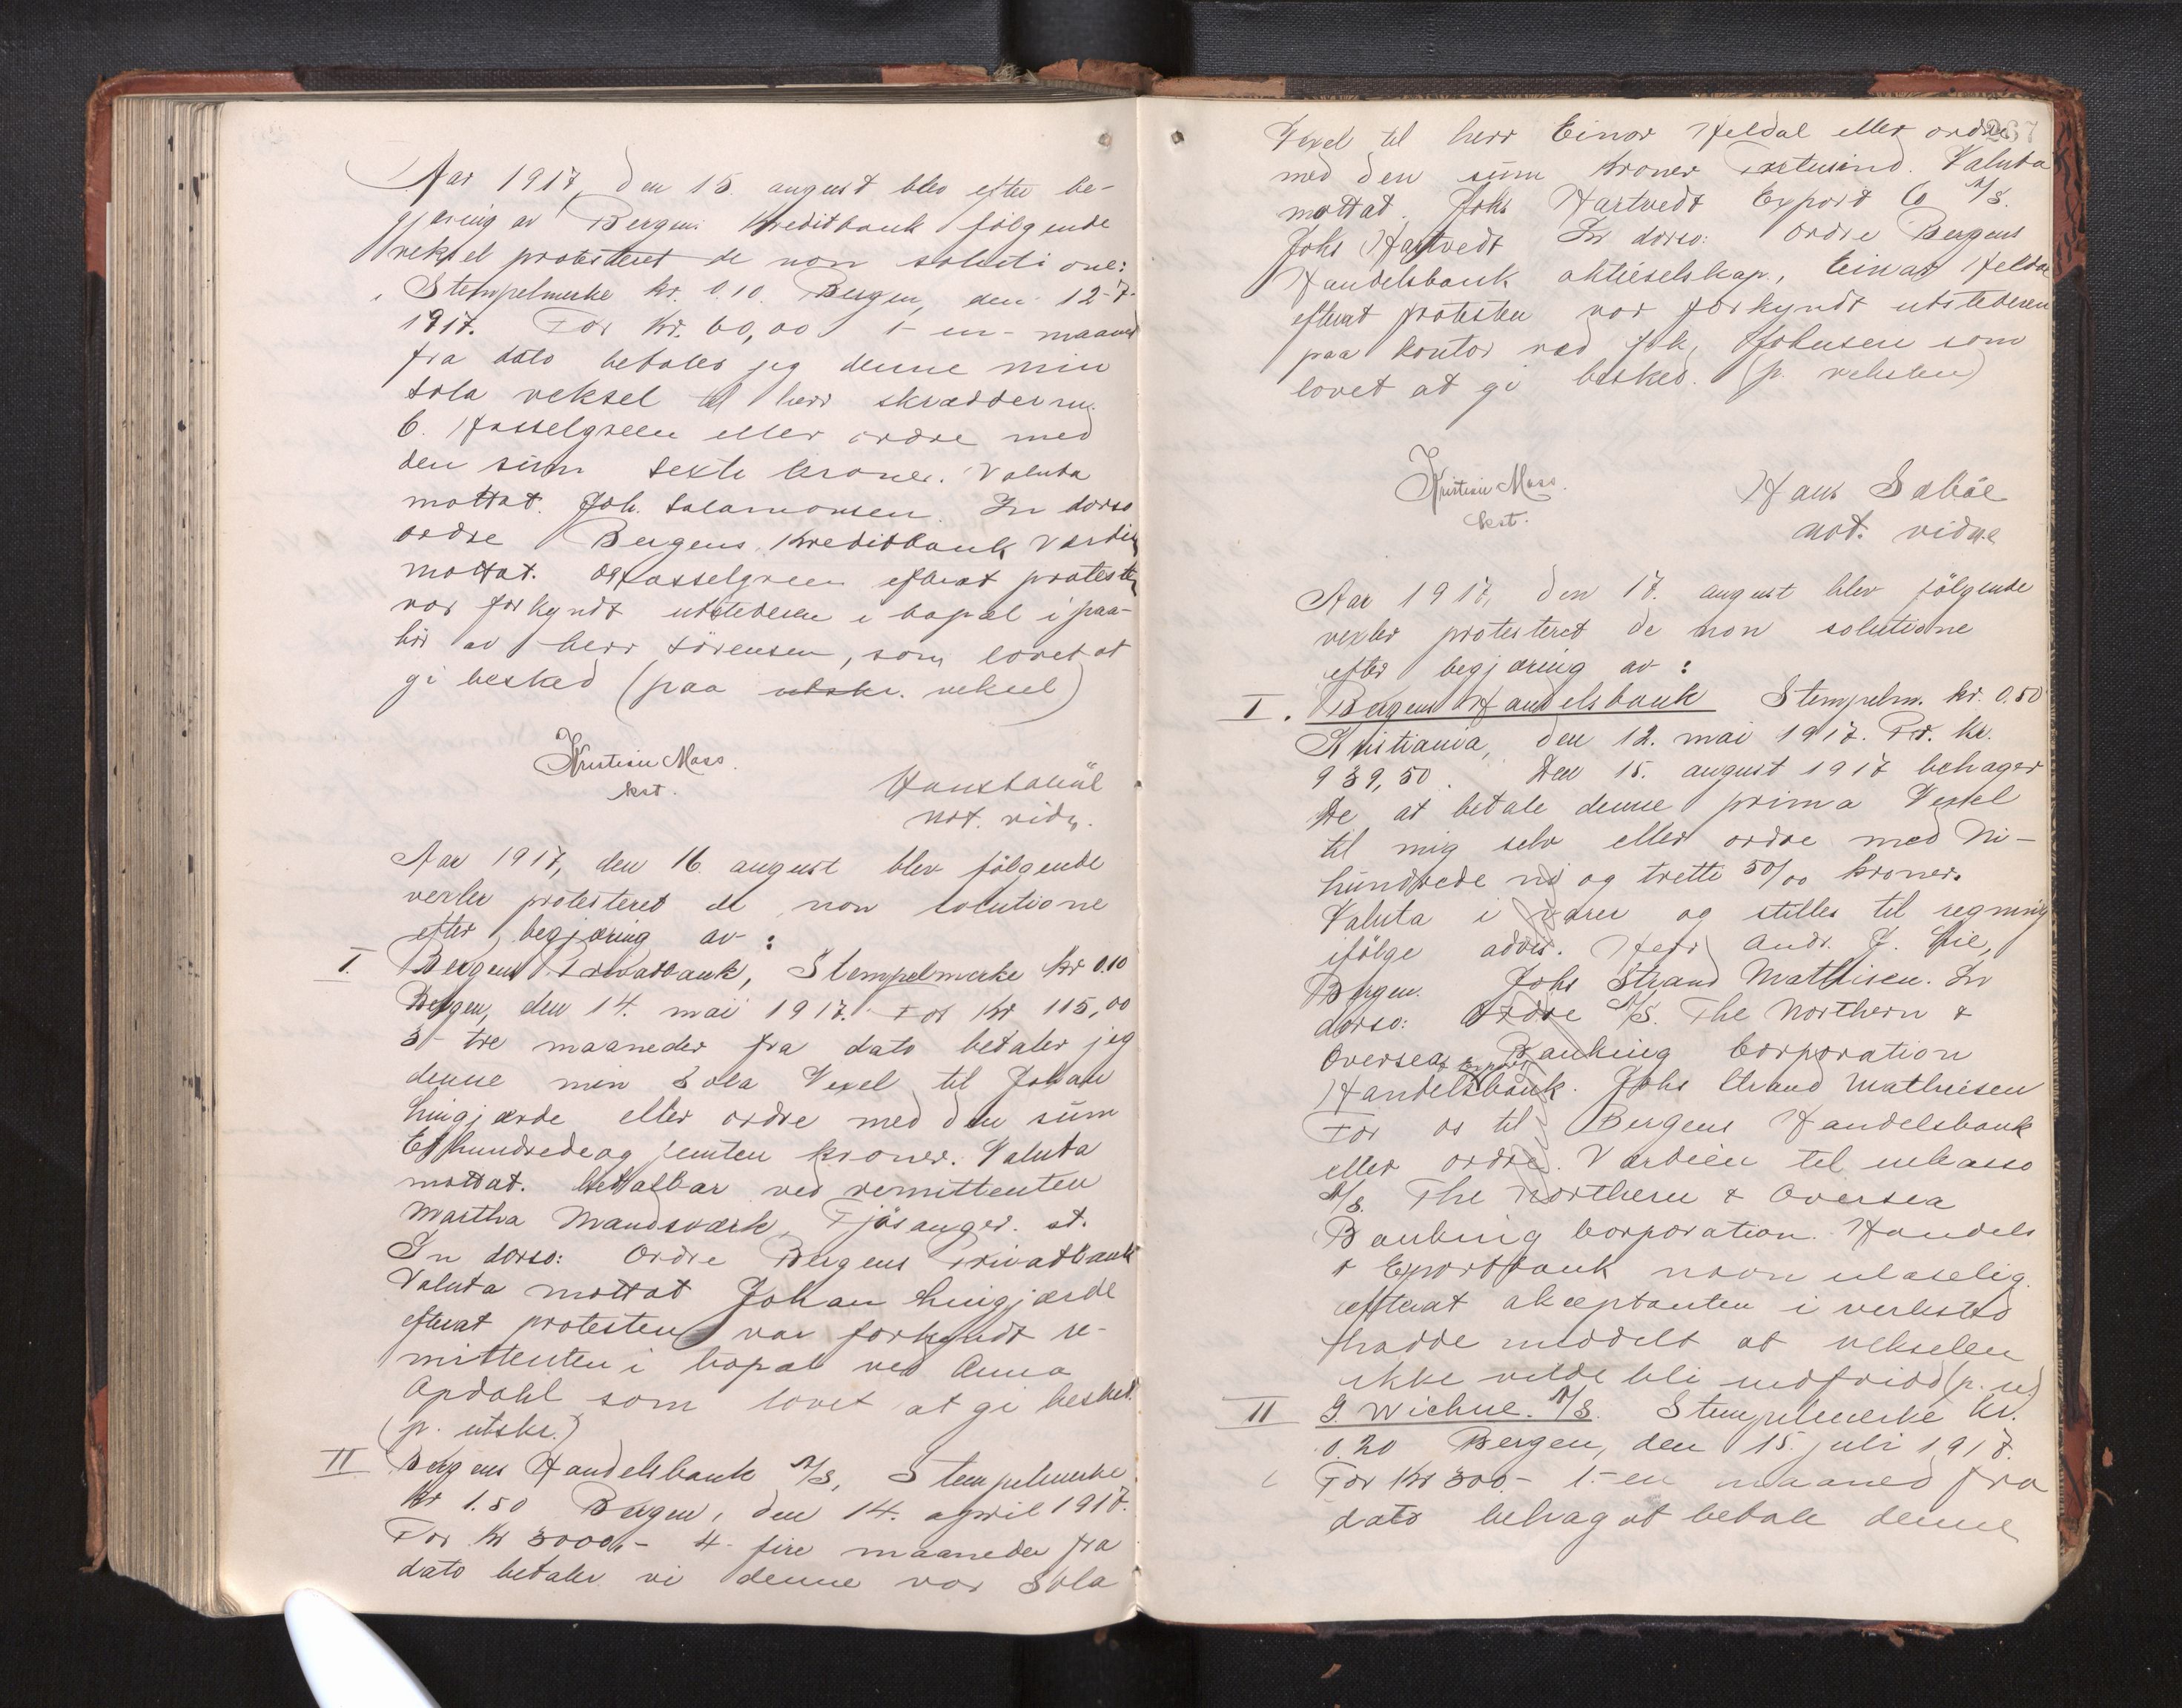 Aar 1917, den 15. august blev efter be-
gjæring av Bergens Kreditbank følgende
veksel protesteret de non solutione:
Stempelmerke kr. 0.10. Bergen, den 12-7-
1917. For Kr. 60,00 1- en- maaned
fra dato betaler jeg denne min
sola veksel til herr skrædderm.
C. Hasselgreen eller ordre med
den sum sexti kroner. Valuta
mottat. Joh. Salamonsen. In dorso
ordre Bergens Kreditbank Værdien
mottat. Hasselgreen efterat protesten
var forkyndt utstederen i bopæl i paa-
hør av herr Sørensen, som lovet at
gi besked (paa utskr. veksel)
Kristian Mass.
kst.
Hans Sabøe
not. vidn.
Aar 1917, den 16. august blev følgende
vexler protesteret de non solutione
efter begjæring av:
I. Bergens Privatbank, Stempelmerke Kr 0.10
Bergen, den 14. mai 1917. For Kr 115,00
3- tre maaneder fra dato betaler jeg
denne min Sola Vexel til Johan
Lingjærde eller ordre med den sum
Ethundredeog femten kroner. Valuta
mottat. betalbar ved remittenten
Martha Mandsværk, Fjøsanger. st.
In dorso: Ordre Bergens Privatbank
Valuta mottat Johan Lingjærde
efterat protesten var forkyndt re-
mittenten i bopæl ved Anna
Opdahl som lovet at gi besked.
(p. utskr.)
II Bergens Handelsbank A/S, Stempelmerke
kr 1.50 Bergen, den 14. april 1917.
For Kr 3000,- 4- fire maaneder fra
dato betaler vi denne vor Sola
267
Vexel til herr Einar Heldal eller ordre
med den sum Kroner Tretusind. Valuta
mottat. Johs Hartvedt Export Co A/S.
Johs Hartvedt In dorso: Ordre Bergens
Handelsbank aktieselskap, Einar Heldal
efterat protesten var forkyndt utstederen
paa kontor ved frk. Johnsen som
lovet at gi besked. (p. vekslen)
Kristian Mass.
kst.
Hans Sabøe
not. vidne
Aar 1917, den 17. august blev følgende
vexler protesteret de non solutione
efter begjæring av:
I. Bergens Handelsbank Stempelm. kr. 0.50
Kristiania, den 12. mai 1917. For. kr.
939,50. Den 15. august 1917 behager
De at betale denne prima Vexel
til mig selv eller ordre med Ni-
hundrede ni og tretti 50/00 kroner.
Valuta i varer og stilles til regning
ifølge advis. Herr Andr. J. Lie,
Bergen. Johs Strand Mathisen. In
dorso: Ordre A/S. The Northern &
Oversea Banking Corporation
Handelsbank. Johs Strand Mathiesen
For os til Bergens Handelsbank
eller ordre. Værdien til inkasso
A/S. The Northern & Oversea
Banking Corporation. Handels
& Exportbank navn ulæselig.
efterat akceptanten i verksted
hadde meddelt at vekselen
ikke vilde bli indfridd (p. u)
II J. Wichne. A/S. Stempelmerke kr.
0.20 Bergen, den 15. juli 1917.
For Kr 300.- 1.- en maaned fra
dato behag at betale denne